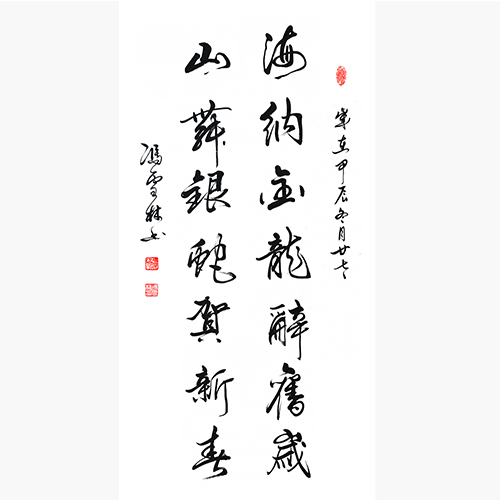 歲在甲辰冬月廿七
海納金龍辭舊歲
山舞銀蛇賀新春
馮雪林書